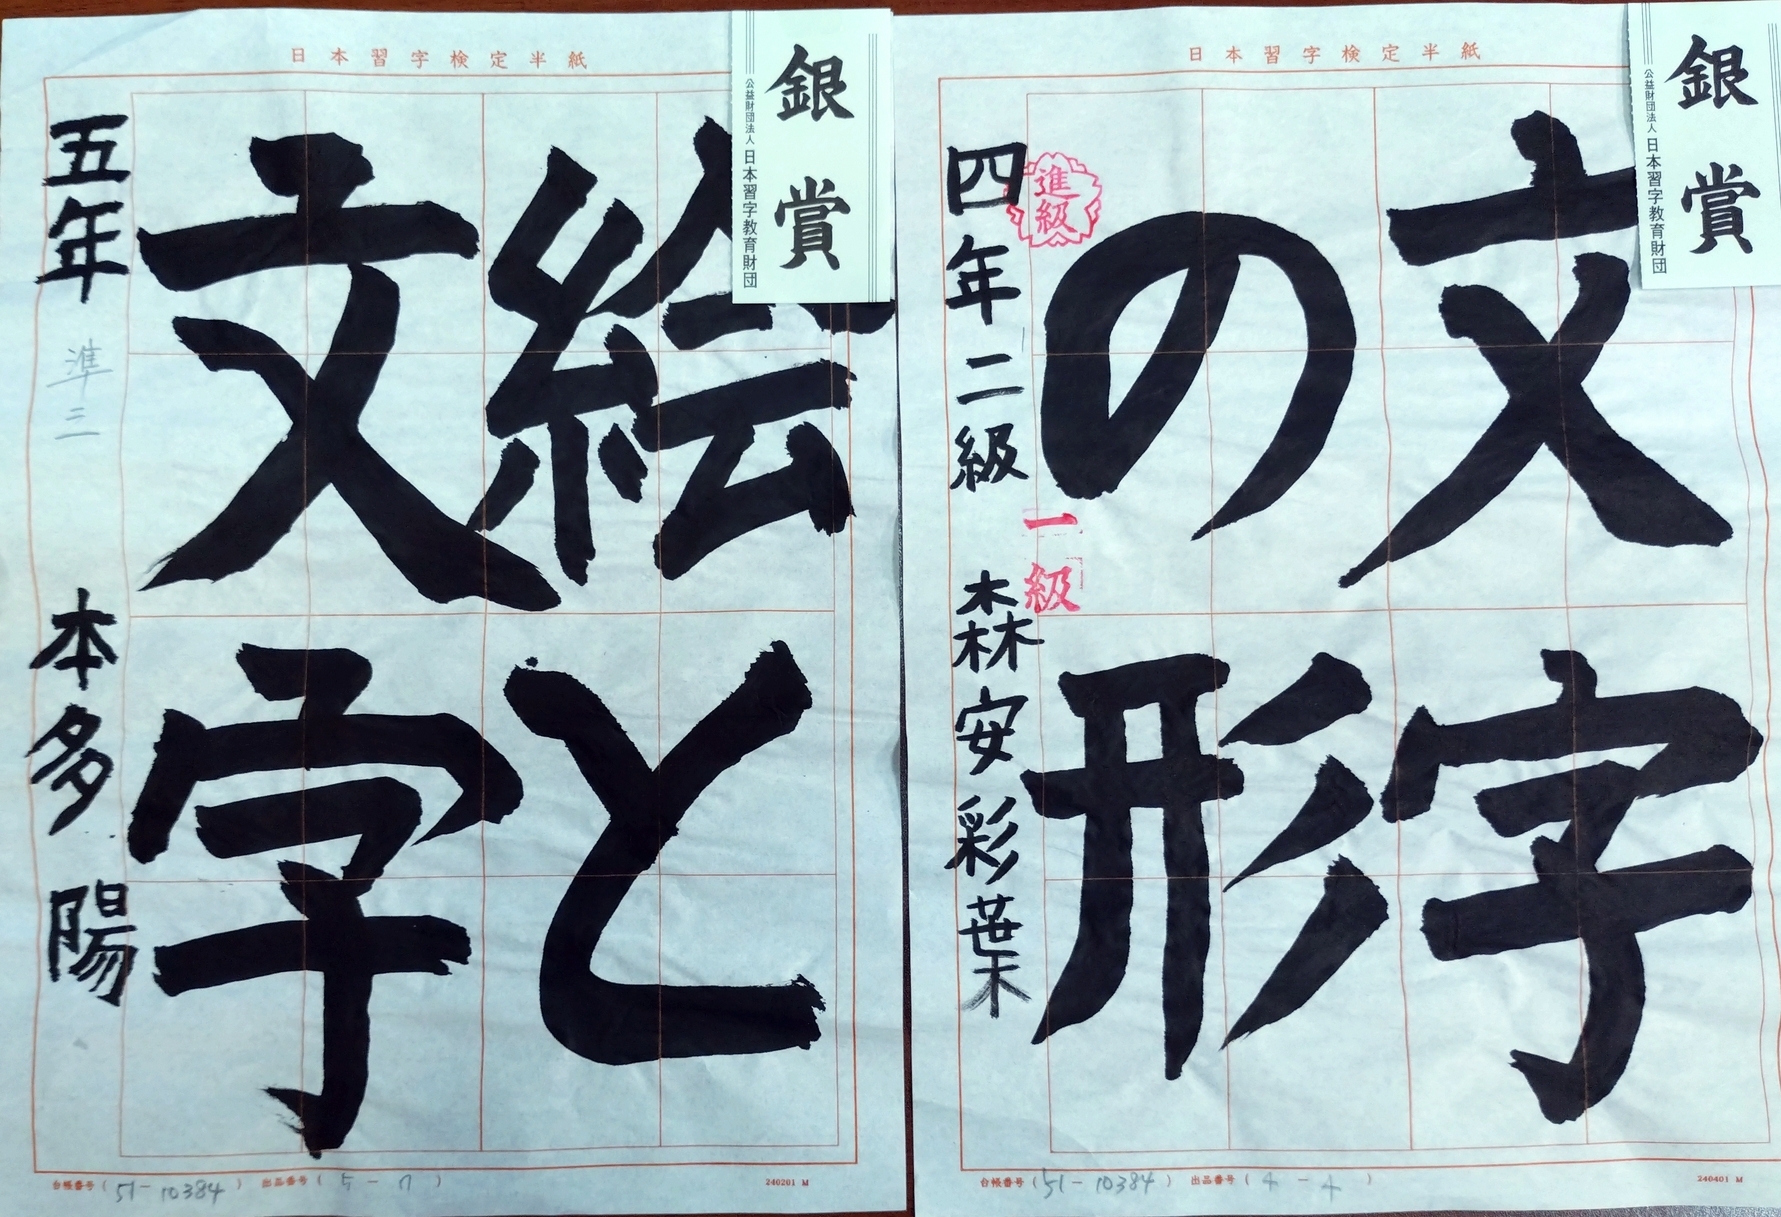 日本習字検定半紙
銀賞
公益財団法人 日本習字教育財団
絵と
文字
五年 準三 本多 陽
台帳番号(51-10384) 出品番号(5-7)
240201 M
日本習字検定半紙
銀賞
公益財団法人 日本習字教育財団
文字
の形
進級
四年 二級 森安彩葉
一級
台帳番号(51-10384) 出品番号(4-4)
240401 M